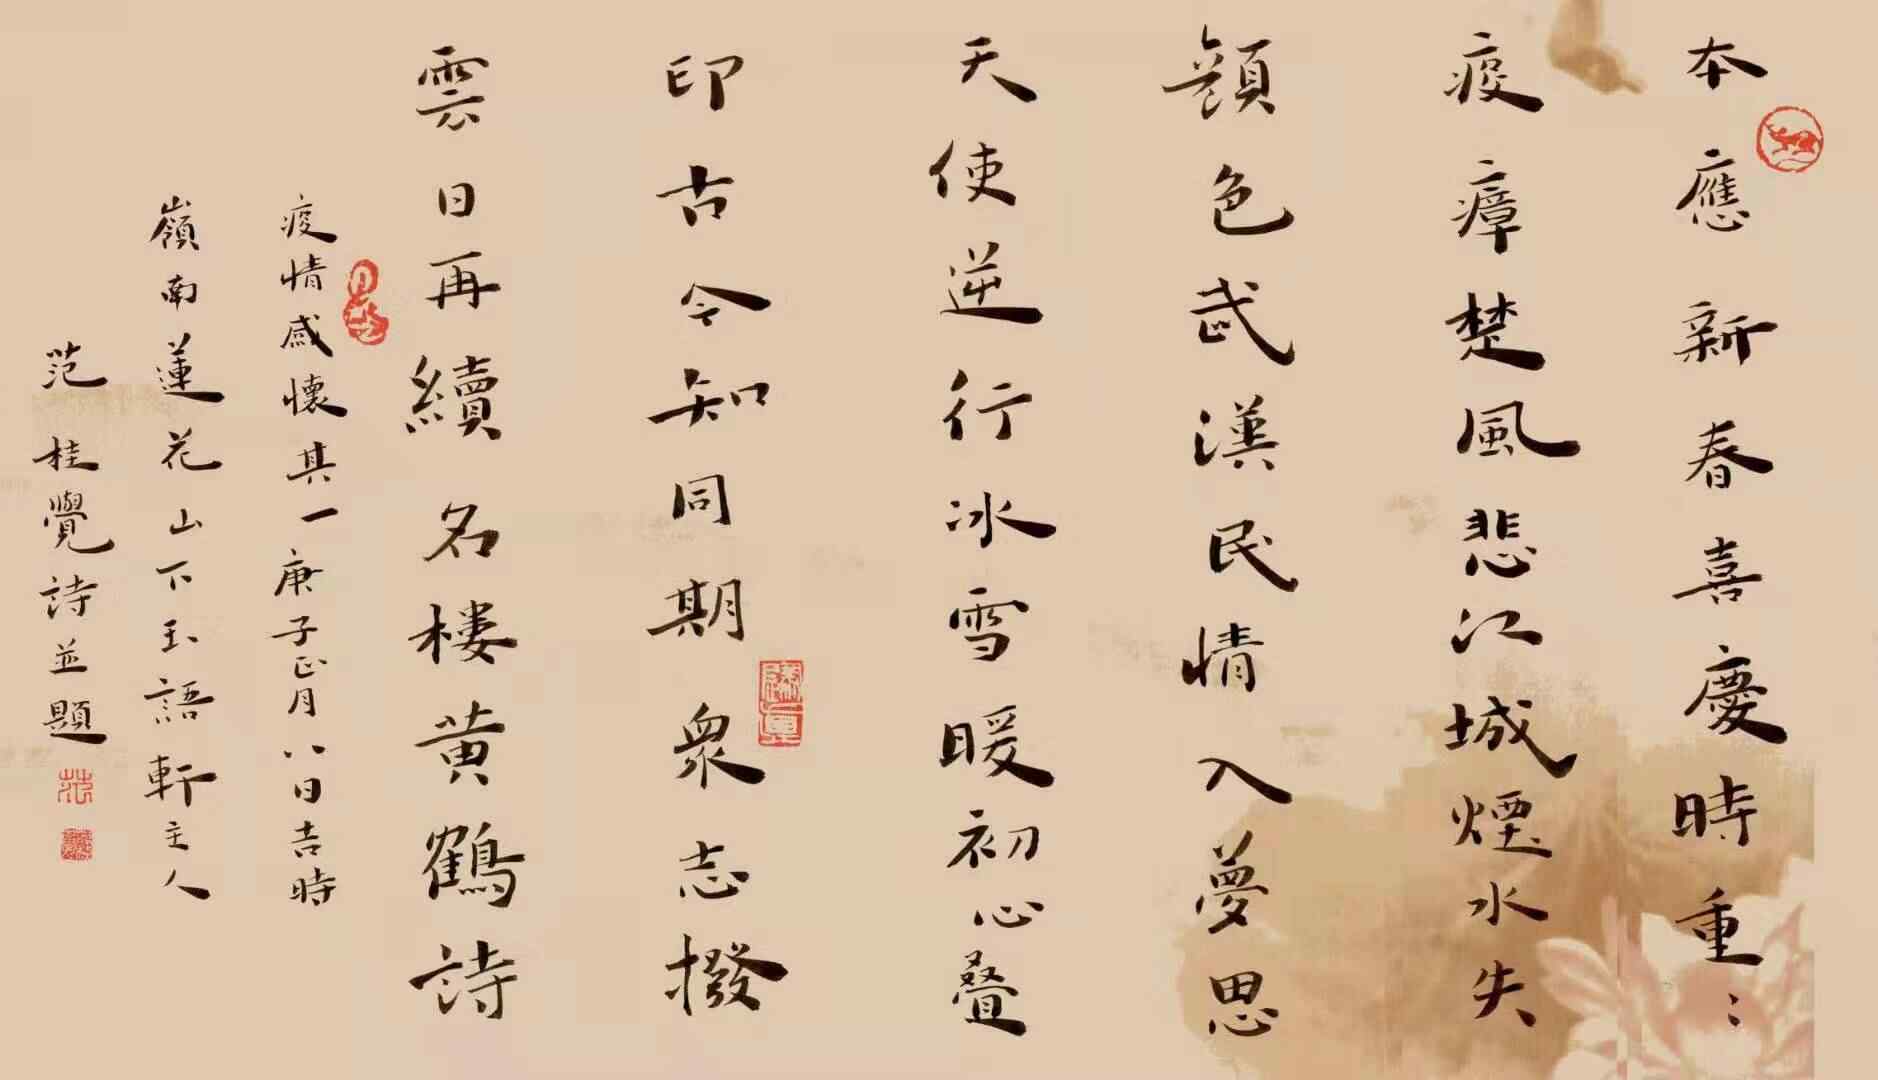 本應新春喜慶時重〻
疫瘴楚風悲江城煙水失
顏色武漢民情入夢思
天使逆行冰雪暖初心叠
印古今知同期衆志撥
雲日再續名楼黄鶴詩
疫情感懷其一庚子正月八日吉時
嶺南蓮花山下玉語軒主人
范桂覺詩並題